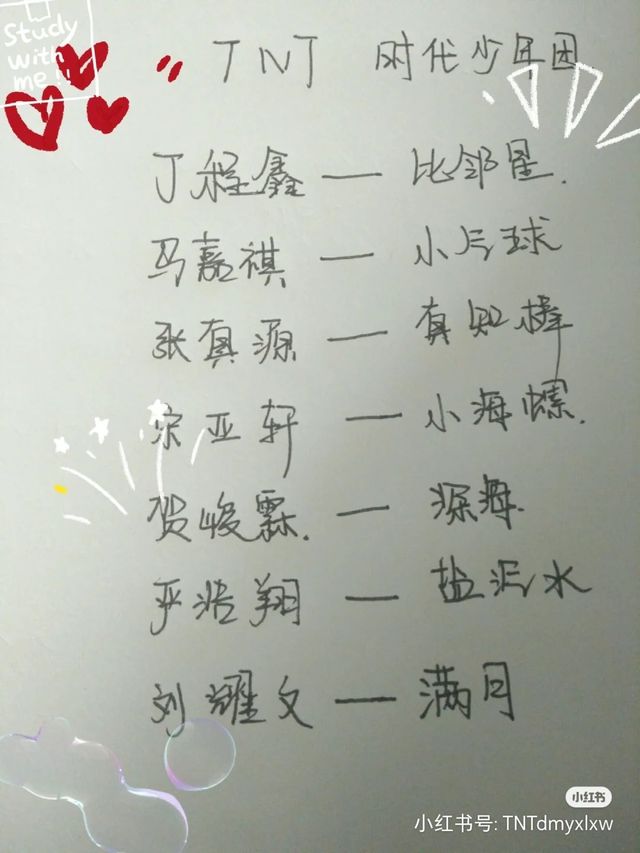 Study
with
me!!
TNT 时代少年团
丁程鑫 — 比邻星.
马嘉祺 — 小气球
张真源 — 真知棒
宋亚轩 — 小海螺.
贺峻霖. — 深海.
严浩翔 — 盐汽水
刘耀文 — 满月
小红书
小红书号: TNTdmyxlxw